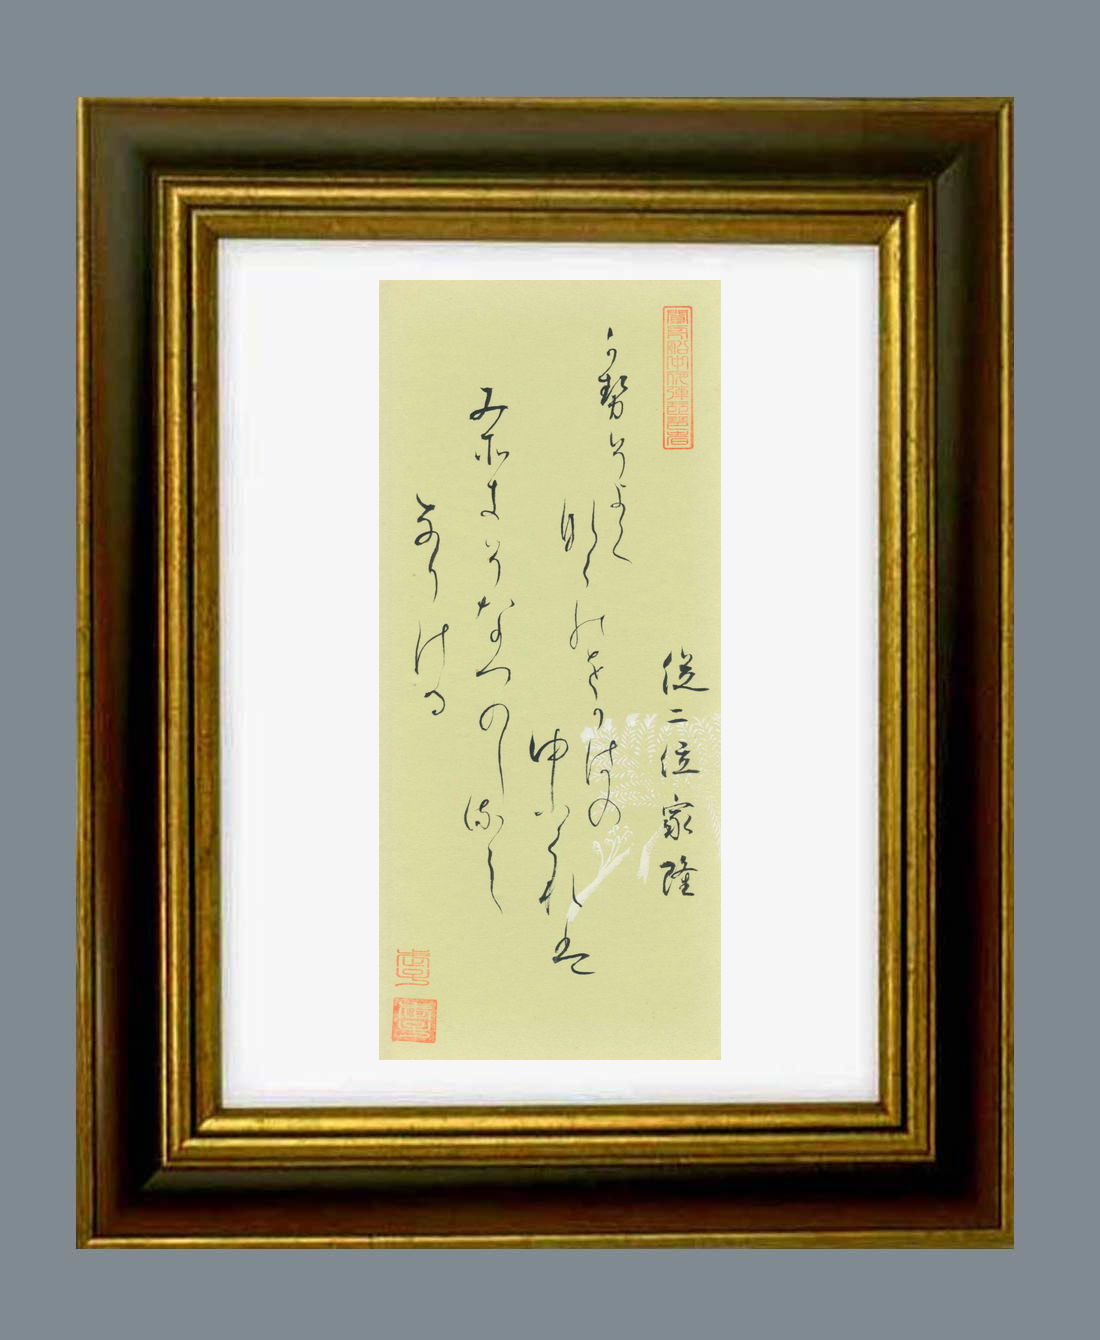 従二位家隆
か勢そよく
那らのをかはの
ゆふくれは
み所きそなつのしるし
なりける